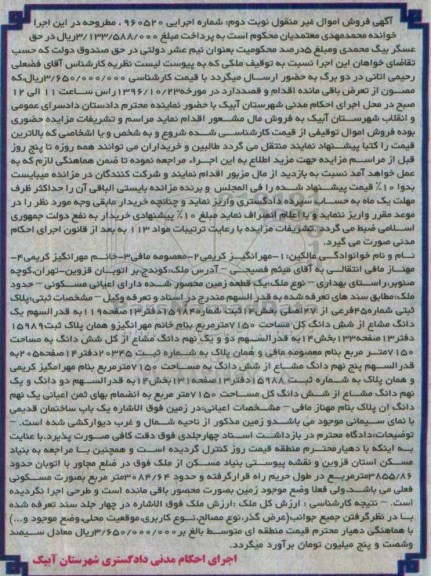 آگهی فروش اموال غیر منقول نوبت دوم: شماره اجرایی ۹۶۰۵۲۰ ، مطروحه در این اجرا
خوانده محمدمهدی معتمدیان محکوم است به پرداخت مبلغ ۳/۱۳۳/۵۸۸/۰۰۰ریال در حق
عسگر بیگ محمدی ومبلغ ۵درصد محکومیت بعنوان نیم عشر دولتی در حق صندوق دولت که حسب
تقاضای خواهان این اجرا نسبت به توقیف ملکی که به پیوست لیست نظریه کارشناس آقای فضعلی
رحیمی اتانی در دو برگ به حضور ارسال میگردد با قیمت کارشناسی ۳/۶۵۰/۰۰۰/۰۰۰ریال،که
مصون از تعرض باقی مانده اقدام و قصددارد در مورخه۱۳۹۶/۱۰/۲۳راس ساعت ۱۱ الی ۱۲
صبح در محل اجرای احکام مدنی شهرستان آبیک با حضور نماینده محترم دادستان دادسرای عمومی
و انقلاب شهرستان آبیک به فروش مال مشعور اقدام نماید مراسم و تشریفات مزایده حضوری
بوده فروش اموال توقیفی از قیمت کارشناسی شده شروع و به شخص و یا اشخاصی که بالاترین
قیمت را کتبا پیشنهاد نمایند منتقل می گردد طالبین و خریداران می توانند همه روزه تا پنج روز
قبل از مراسم مزایده جهت مزید اطلاع به این اجراء مراجعه نموده تا ضمن هماهنگی لازم که به
عمل خواهد آمد نسبت به بازدید از مال مزبور اقدام نمایند و شرکت کنندگان در مزایده میبایست
بدوا ۱۰٪ قیمت پیشنهاد شده را فی المجلس و برنده مزایده بایستی الباقی آن را حداکثر ظرف
مهلت یک ماه به حساب سپرده دادگستری واریز نماید و چنانچه خریدار مابقی وجه مورد نظر را در
موعد مقرر واریز ننماید و با اعلام انصراف نماید مبلغ ۱۰٪ پیشنهادی خریدار به نفع دولت جمهوری
اسلامی ضبط می گردد. تشریفات مزایده با رعایت ترتیبات مواد ۱۱۳ به بعد از قانون اجرای احکام
مدنی صورت می گیرد.
نام و نام خانوادگی مالکین: ۱-مهرانگیز کریمی۲-معصومه مافی۳-خانم مهرانگیز کریمی۴-
مهناز مافی انتقالی به آقای میثم فصیحی – آدرس ملک:کوندج،بر اتوبان قزوین-تهران،کوچه
صنوبر،راستای بهداری – نوع ملک:یک قطعه زمین محصور شده دارای اعیانی مسکونی – حدود
ملک:مطابق سند های تعرفه شده به قدر السهم مندرج در اسناد و تعرفه وکیل – مشخصات ثبتی:پلاک
ثبتی شماره۴۵فرعی از ۴۷اصلی بخش۱۴ثبت شماره۱۵۹۸۴دفتر۱۳صفحه۱۱۹به قدرالسهم یک
دانگ مشاع از شش دانگ کل مساحت ۷۱۵۰مترمربع بنام خانم مهرانگیزو همان پلاک ثبت۱۵۹۸۹
دفتر۱۳صفحه۱۳۳بخش۱۴به قدرالسهم دو و یک نهم دانگ مشاع از کل شش دانگ به مساحت
۷۱۵۰متر مربع بنام معصومه مافی و همان پلاک به شماره ثبت ۲۰۳۴۵دفتر۱۴صفحه۲۰۵به
قدرالسهم پنج نهم دانگ مشاع از شش دانگ به مساحت ۷۱۵۰مترمربع بنام مهرامگیز کریمی
و همان پلاک به شماره ثبت ۱۵۹۸۸دفتر۱۳صفحه۱۳۱بخش۱۴به قدرالسهم دو دانگ و یک
نهم دانگ مشاع از شش دانگ کل مساحت ۷۱۵۰متر مربع به انضمام بهای ثمن اعیانی یک نهم
دانگ ان پلاک بنام مهناز مافی – مشخصات اعیانی:در زمین فوق الاشاره یک باب ساختمان قدیمی
با نمای سیمانی موجود می باشدو زمین مذکور از ناحیه شمال و غرب دیوارکشی شده است. –
توضیحات:دادگاه محترم در بازداشت اسناد چهارجلدی فوق دقت کافی صورت پذیرد،با عنایت
به اینکه با دهیارمحترم منطقه قیمت روز کنترل گردیده است و همچنین با مراجعه به بنیاد
مسکن استان قزوین و نقشه پیوستی بنیاد مسکن از ملک فوق در ضلع مجاور با اتوبان حدود
۳۸۵۵/۸۶مترمربع در طول حریم راه قرارگرفته و حدود ۳۰۸۴/۶۴متر مربع بصورت مسکونی
فعلی می باشد،ولی فعلا وضع موجود زمین بصورت محصور باقی مانده است و طرحی اجرا نگردیده
است. – نتیجه کارشناسی : ارزش کل ملک :ارزش ملک فوق الاشاره در چهار جلد سند تعرفه شده
با در نظرگرفتن جمیع جوانب(عرض گذر،نوع مصالح،نوع کاربری،موقعیت محلی،وضع موجود و...)
با هماهنگی دهیار محترم قیمت منطقه ای متوسط بالغ بر۳/۶۵۰/۰۰۰/۰۰۰ریال معادل سیصد
وشصت و پنج میلیون تومان برآورد میگردد.
اجرای احکام مدنی دادگستری شهرستان آبیک